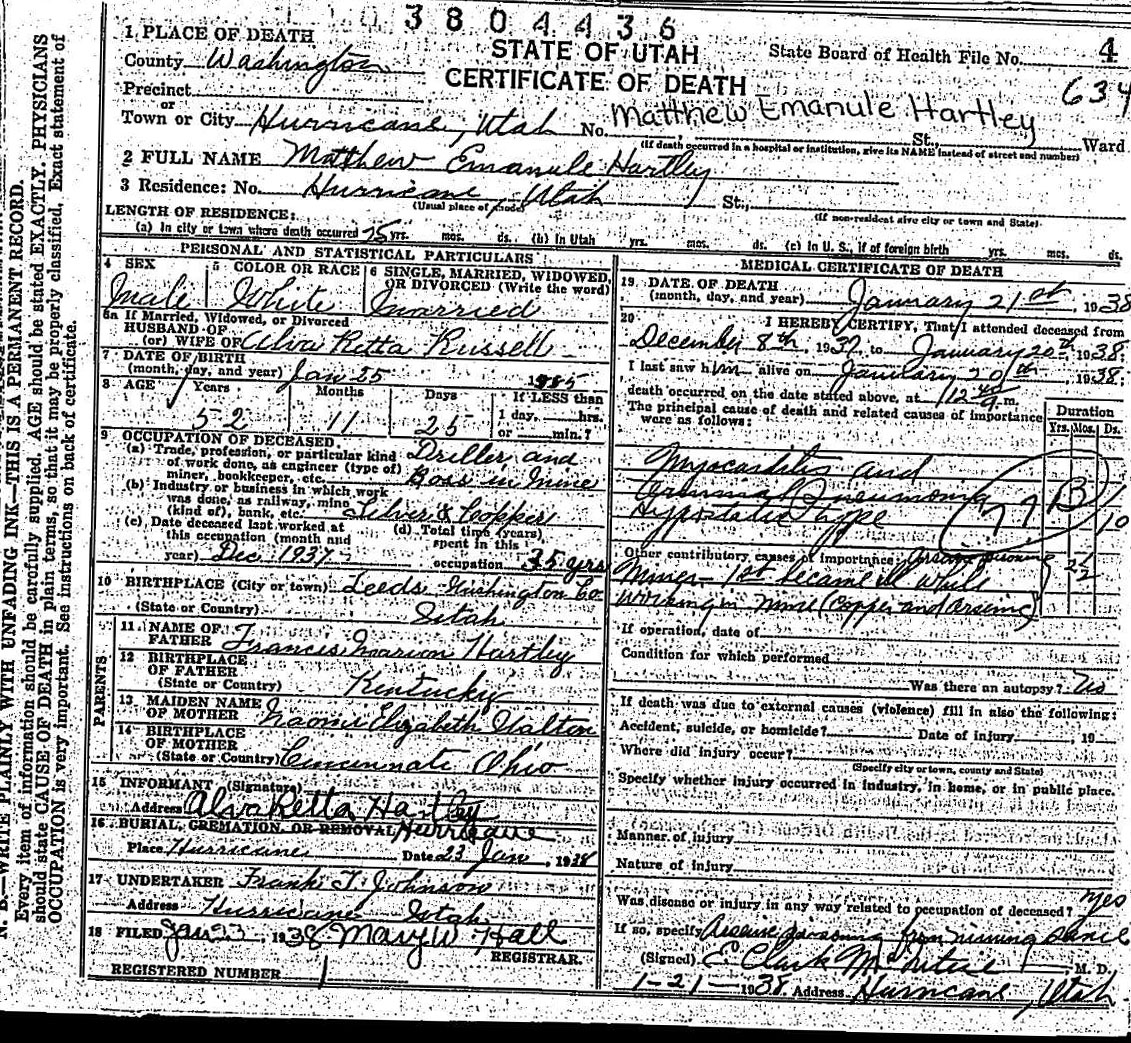 3804436
STATE OF UTAH
CERTIFICATE OF DEATH
State Board of Health File No. 4
634
1 PLACE OF DEATH
County Washington
Precinct
or
Town or City Hurricane, Utah No. Matthew Emanule Hartley St., Ward
(If death occurred in a hospital or institution, give its NAME instead of street and number)
2 FULL NAME Matthew Emanule Hartley
3 Residence: No. Hurricane, Utah St.,
(Usual place of abode) (If non-resident give city or town and State)
LENGTH OF RESIDENCE:
(a) In city or town where death occurred yrs. mos. ds. (b) In Utah yrs. mos. ds. (c) In U. S., if of foreign birth yrs. mos. ds.
PERSONAL AND STATISTICAL PARTICULARS
4 SEX Male
5 COLOR OR RACE White
6 SINGLE, MARRIED, WIDOWED, OR DIVORCED (Write the word) Married
6a If Married, Widowed, or Divorced
HUSBAND OF
(or) WIFE OF Alva Retta Russell
7 DATE OF BIRTH
(month, day, and year) Jan 25 1885
8 AGE Years Months Days If LESS than
52 11 25 1 day, hrs.
or min.?
9 OCCUPATION OF DECEASED
(a) Trade, profession, or particular kind Driller and
of work done, as engineer (type of)
miner, bookkeeper, etc. Boss in Mine
(b) Industry or business in which work
was done, as railway, mine
(kind of), bank, etc. Silver & Copper
(c) Date deceased last worked at
this occupation (month and
year) Dec. 1937
(d) Total time (years)
spent in this
occupation 35 yrs
10 BIRTHPLACE (City or town) Leeds Washington Co.
(State or Country) Utah
PARENTS
11 NAME OF
FATHER Francis Marion Hartley
12 BIRTHPLACE
OF FATHER
(State or Country) Kentucky
13 MAIDEN NAME
OF MOTHER Naomi Elizabeth Walton
14 BIRTHPLACE
OF MOTHER
(State or Country) Cincinnate Ohio
15 INFORMANT (Signature)
Address Alva Retta Hartley
Hurricane
16 BURIAL, CREMATION, OR REMOVAL
Place Hurricane Date 23 Jan, 1938
17 UNDERTAKER Frank T. Johnson
Address Hurricane Utah
18 FILED Jan 23, 1938 Mary W Hall
REGISTRAR.
REGISTERED NUMBER 1
MEDICAL CERTIFICATE OF DEATH
19 DATE OF DEATH
(month, day, and year) January 21st, 1938
20 I HEREBY CERTIFY, That I attended deceased from
December 8th, 1937, to January 20th, 1938;
I last saw him alive on January 20th, 1938;
death occurred on the date stated above, at m.
The principal cause of death and related causes of importance
were as follows:
Duration
Yrs. Mos. Ds.
Myocardites and
Pneumonia
Hypostatic type
10
Other contributory causes of importance: Arsenic poisoning
Miner- 1st became ill while
working in mine (copper and arsenic)
If operation, date of
Condition for which performed
Was there an autopsy? No
If death was due to external causes (violence) fill in also the following:
Accident, suicide, or homicide? Date of injury, 19
Where did injury occur?
(Specify city or town, county and State)
Specify whether injury occurred in industry, in home, or in public place.
Manner of injury
Nature of injury
Was disease or injury in any way related to occupation of deceased? yes
If so, specify Arsenic poisoning from mining
(Signed) E. Clark M. D.
1-21-1938 Address Hurricane, Utah
N. B.—WRITE PLAINLY WITH UNFADING INK—THIS IS A PERMANENT RECORD.
Every item of information should be carefully supplied. AGE should be stated EXACTLY. PHYSICIANS
should state CAUSE OF DEATH in plain terms, so that it may be properly classified. Exact statement of
OCCUPATION is very important. See instructions on back of certificate.